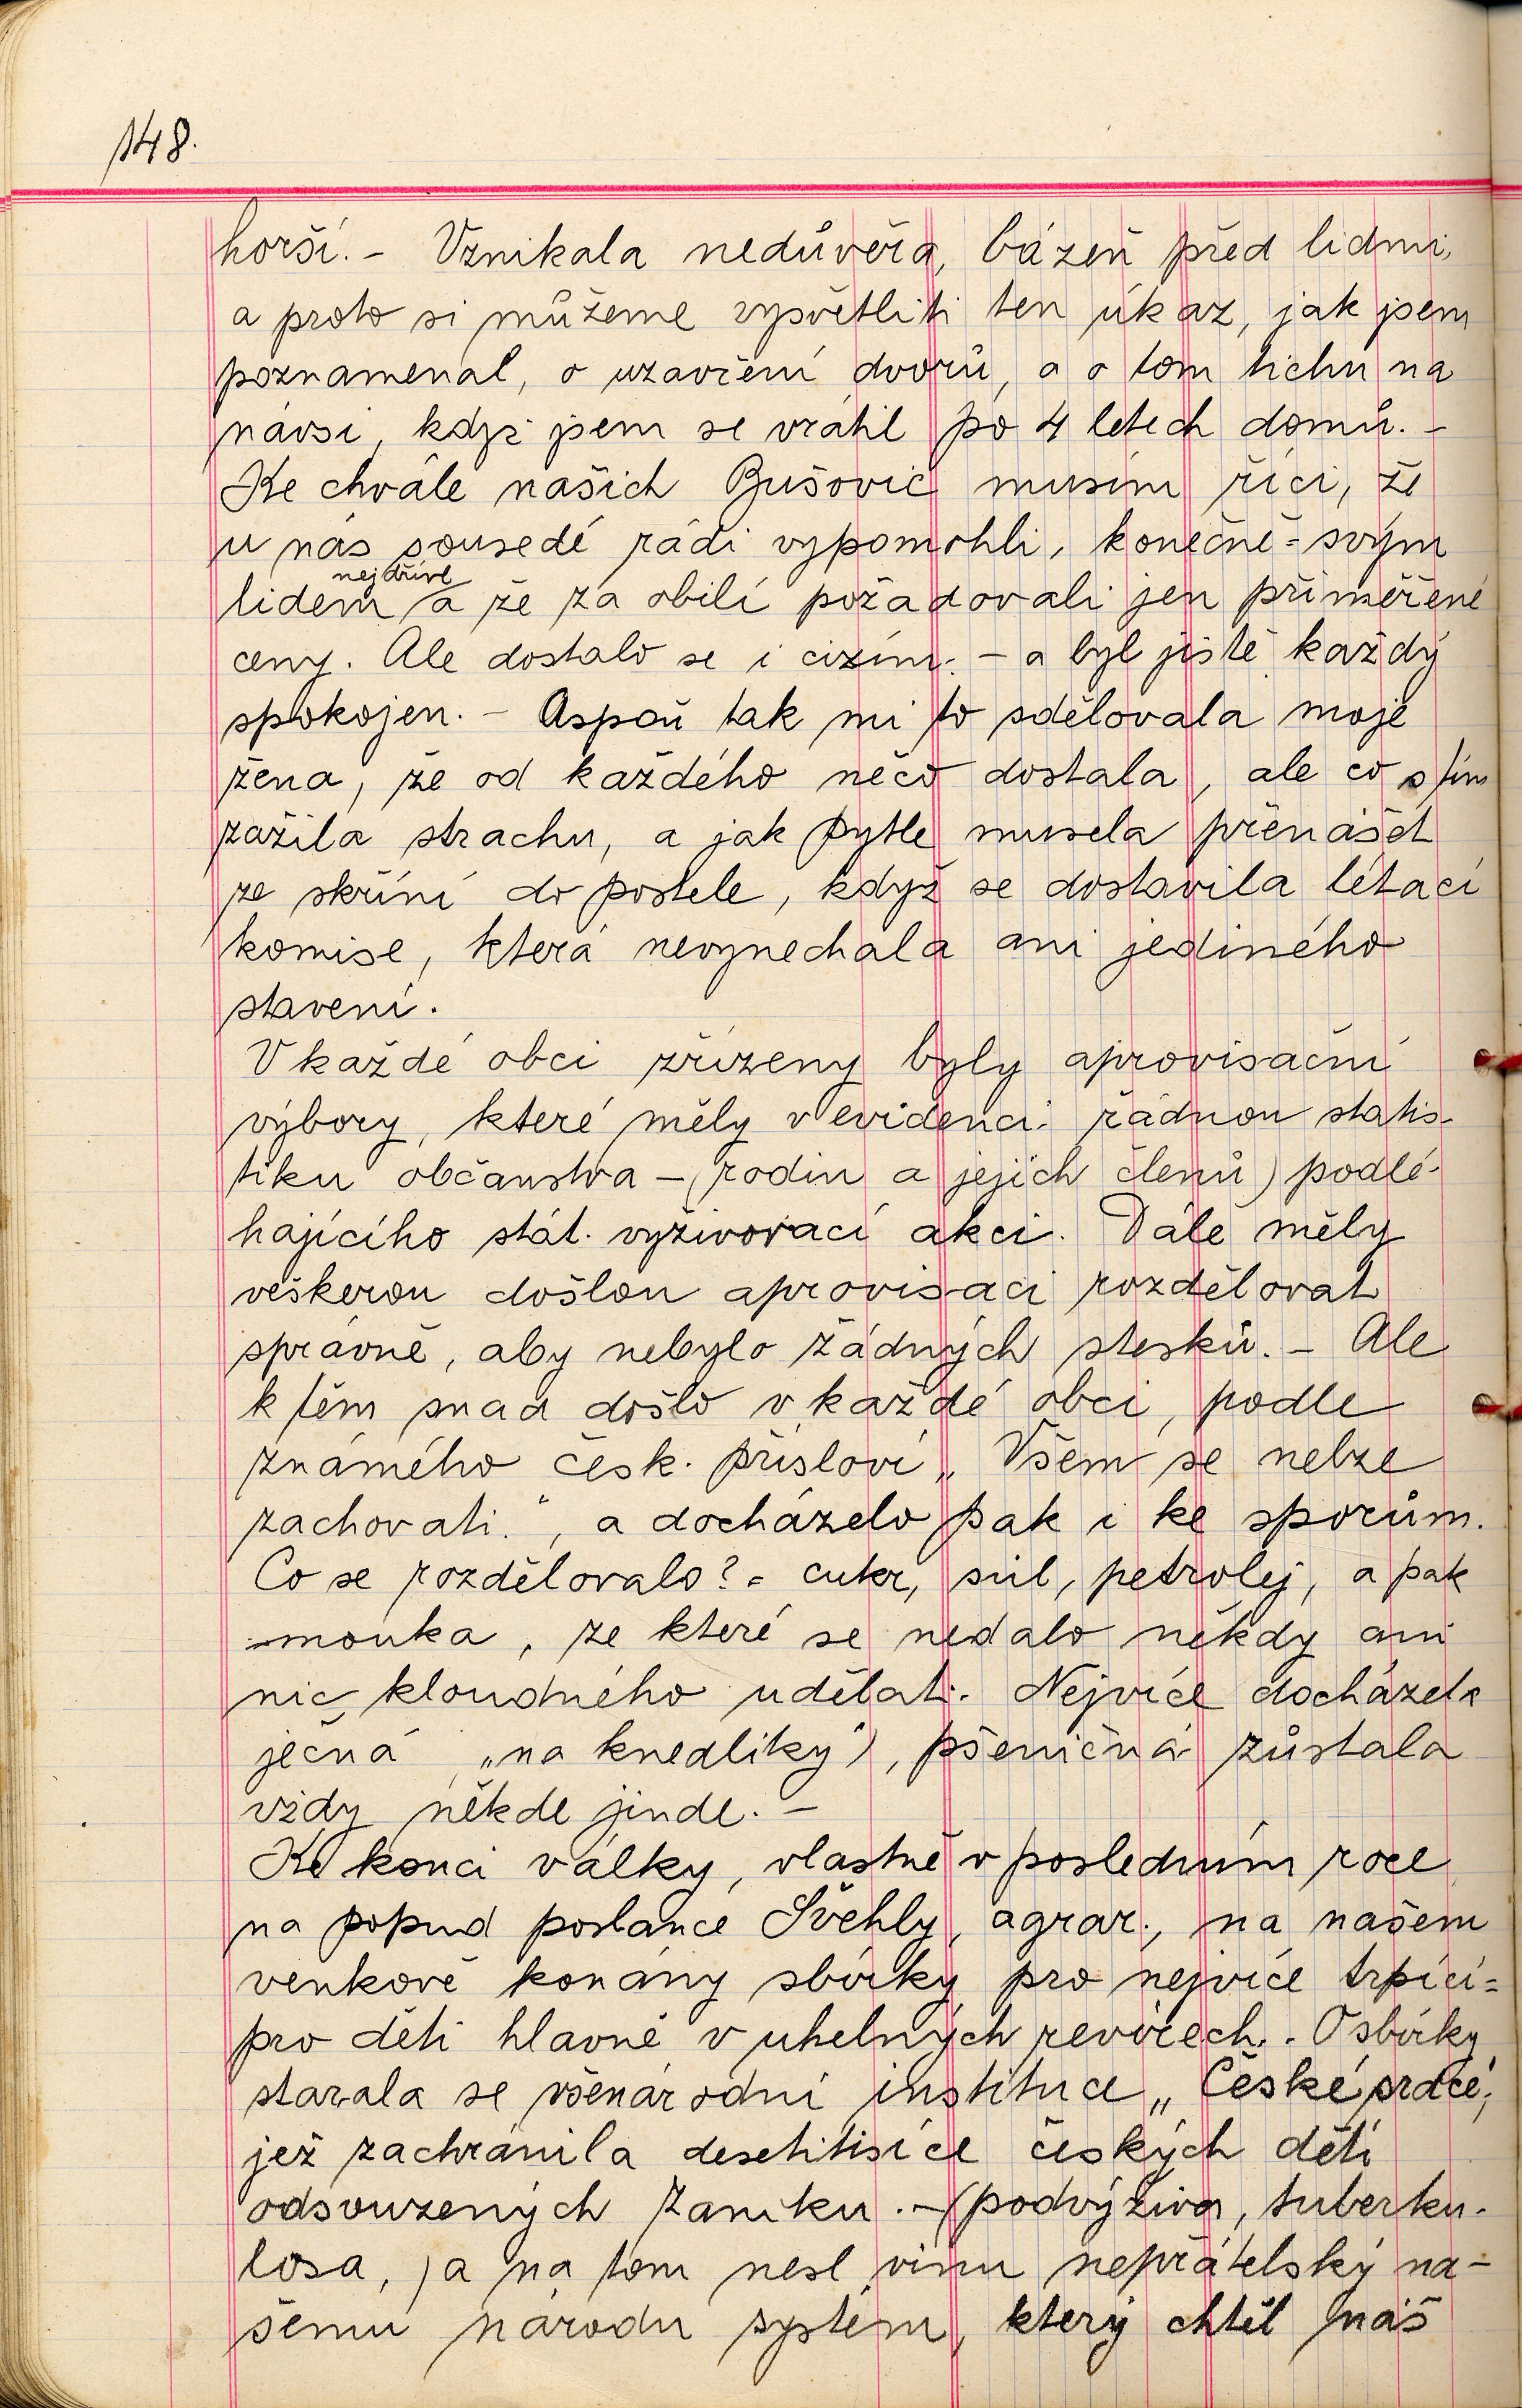 148.
horší. - Vznikala nedůvěra, bázeň před lidmi,
a proto si můžeme vysvětliti ten úkaz, jak jsem
poznamenal, o uzavření dvorů, a o tom tichu na
návsi, když jsem se vrátil po 4 letech domů. -
Ke chvále našich Bušovic musím říci, že
u nás sousedé rádi vypomohli, konečně - svým
nejdříve
lidem a že za obilí požadovali jen přiměřené
ceny. Ale dostalo se i cizím. - a byl jistě každý
spokojen. - Aspoň tak mi to sdělovala moje
žena, že od každého něco dostala, ale co s tím
zažila strachu, a jak pytle musela přenášet
ze skříní do postele, když se dostavila létací
komise, která nevynechala ani jediného
stavení.
V každé obci zřízeny byly aprovisační
výbory, které měly v evidenci řádnou statis-
tiku občanstva - (rodin a jejich členů) podlé-
hajícího stát. vyživovací akci. Dále měly
veškerou došlou aprovisaci rozdělovat
správně, aby nebylo žádných stesků. - Ale
k těm snad došlo v každé obci, podle
známého česk. přísloví „Všem se nelze
zachovati.“, a docházelo pak i ke sporům.
Co se rozdělovalo? - cukr, sůl, petrolej, a pak
mouka, ze které se nedalo někdy ani
nic kloudného udělati. Nejvíce docházela
ječná „na knedlíky“), pšeničná zůstala
vždy někde jinde. -
Ke konci války, vlastně v posledním roce
na popud poslance Švehly, agrar., na našem
venkově konány sbírky pro nejvíce trpící -
pro děti hlavně v uhelných revírech. - O sbírky
starala se všenárodní instituce „České srdce“,
jež zachránila desetitisíce českých dětí
odsouzených zániku. - (podvýživa, tuberku-
losa,) a na tom nesl vinu nepřátelský na-
šemu národu systém, který chtěl náš